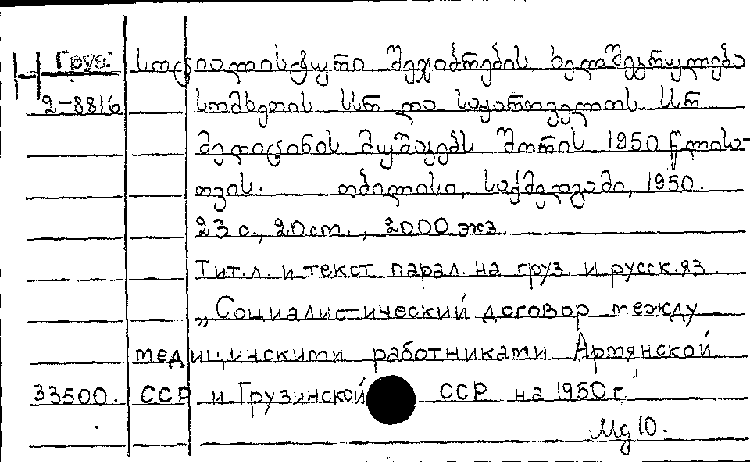 Груз. სოციალისტური შეჯიბრების ხელშეკრულება
2-8816 სომხეთის სსრ და საქართველოს სსრ
მედიცინის მუშაკებს შორის 1950 წლისა-
თვის. თბილისი, საქმედგამი, 1950.
23 с., 20 см., 2000 экз.
Тит. л. и текст парал. на груз. и русск. яз.
„Социалистический договор между
медицинскими работниками Армянской
33500. ССР и Грузинской ССР на 1950 г.“
Мд 10.